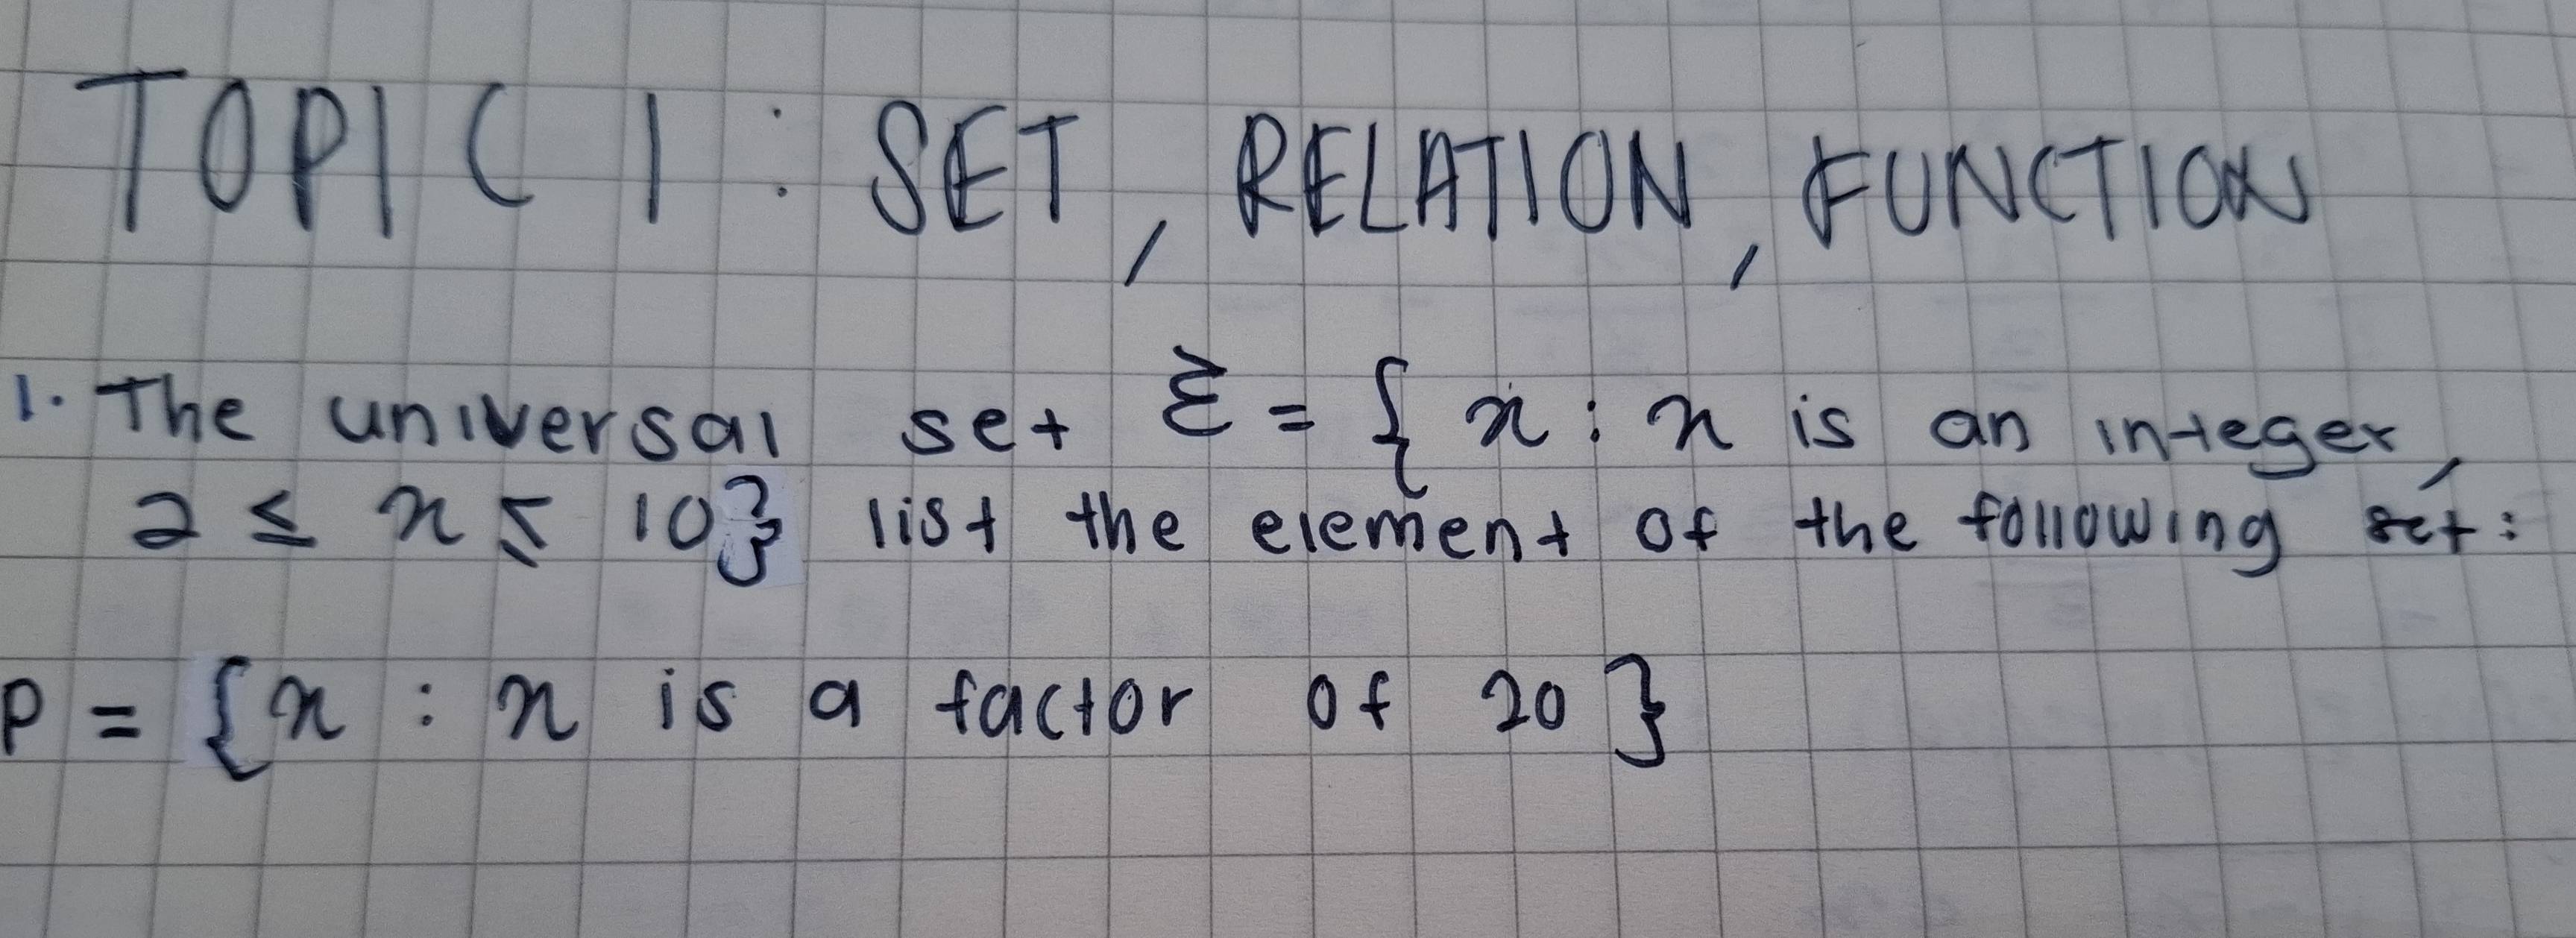 TOPIC 1 : SET, RELATION, FUNCTION
1. The universal set ξ = { x : x is an integer,
2 ≤ x ≤ 10} list the element of the following set:
P = {x : x is a factor of 20}